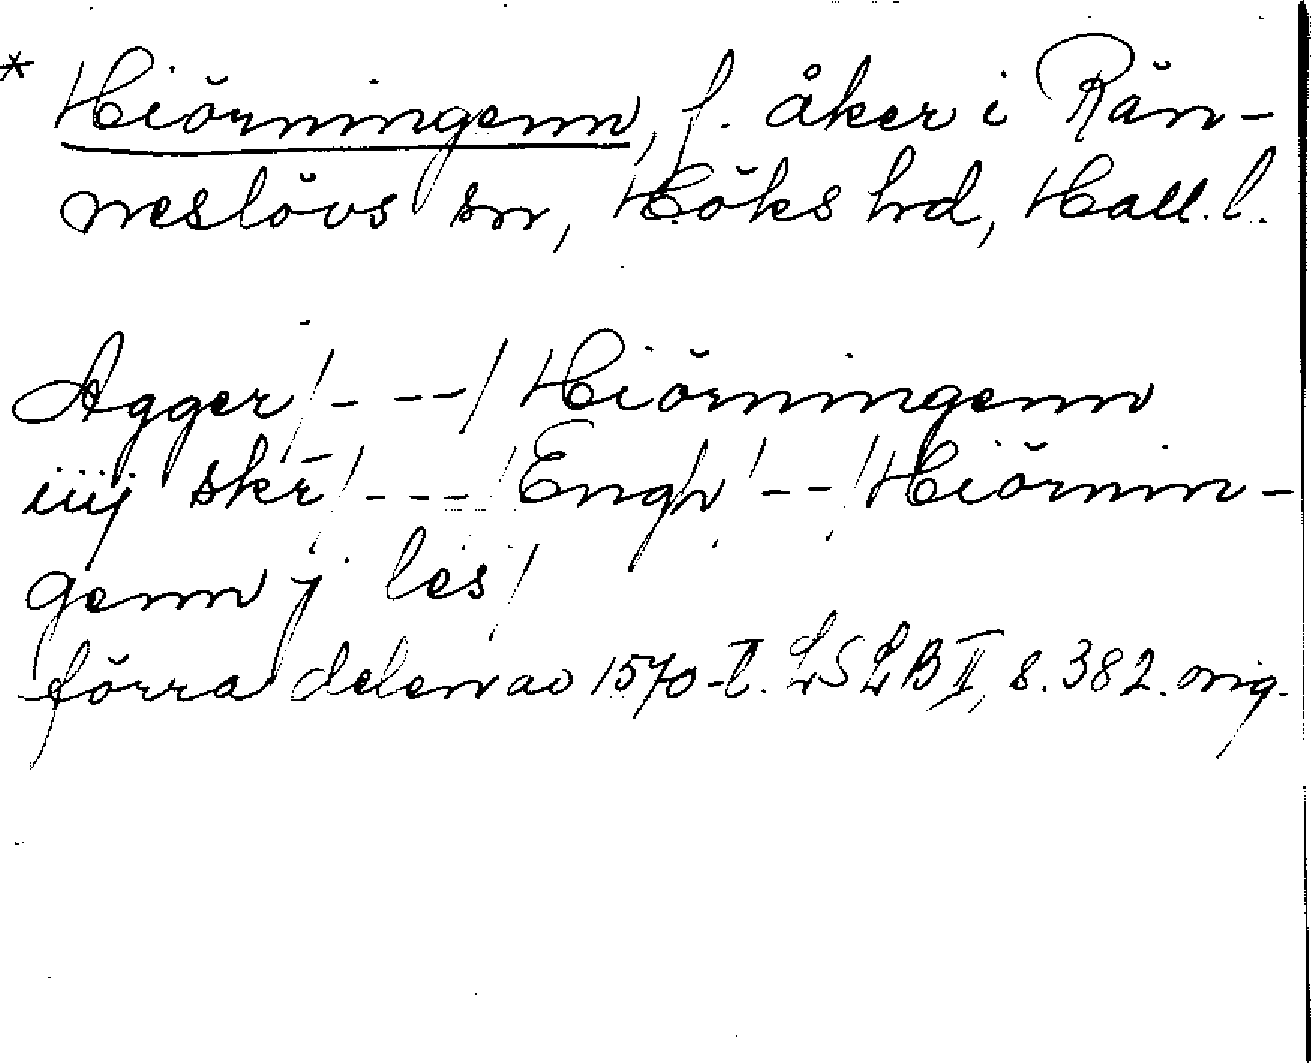 * Hiörningenn, f. åker i Rän-
neslövs sn, Höks hd, Hall. l.
Agger / - -- / Hiörningenn
iiij skr̄ / - -- / Engh / -- / Hiörnin-
genn j les /
förra delen av 1570-t. LSLB II, s. 382. orig.